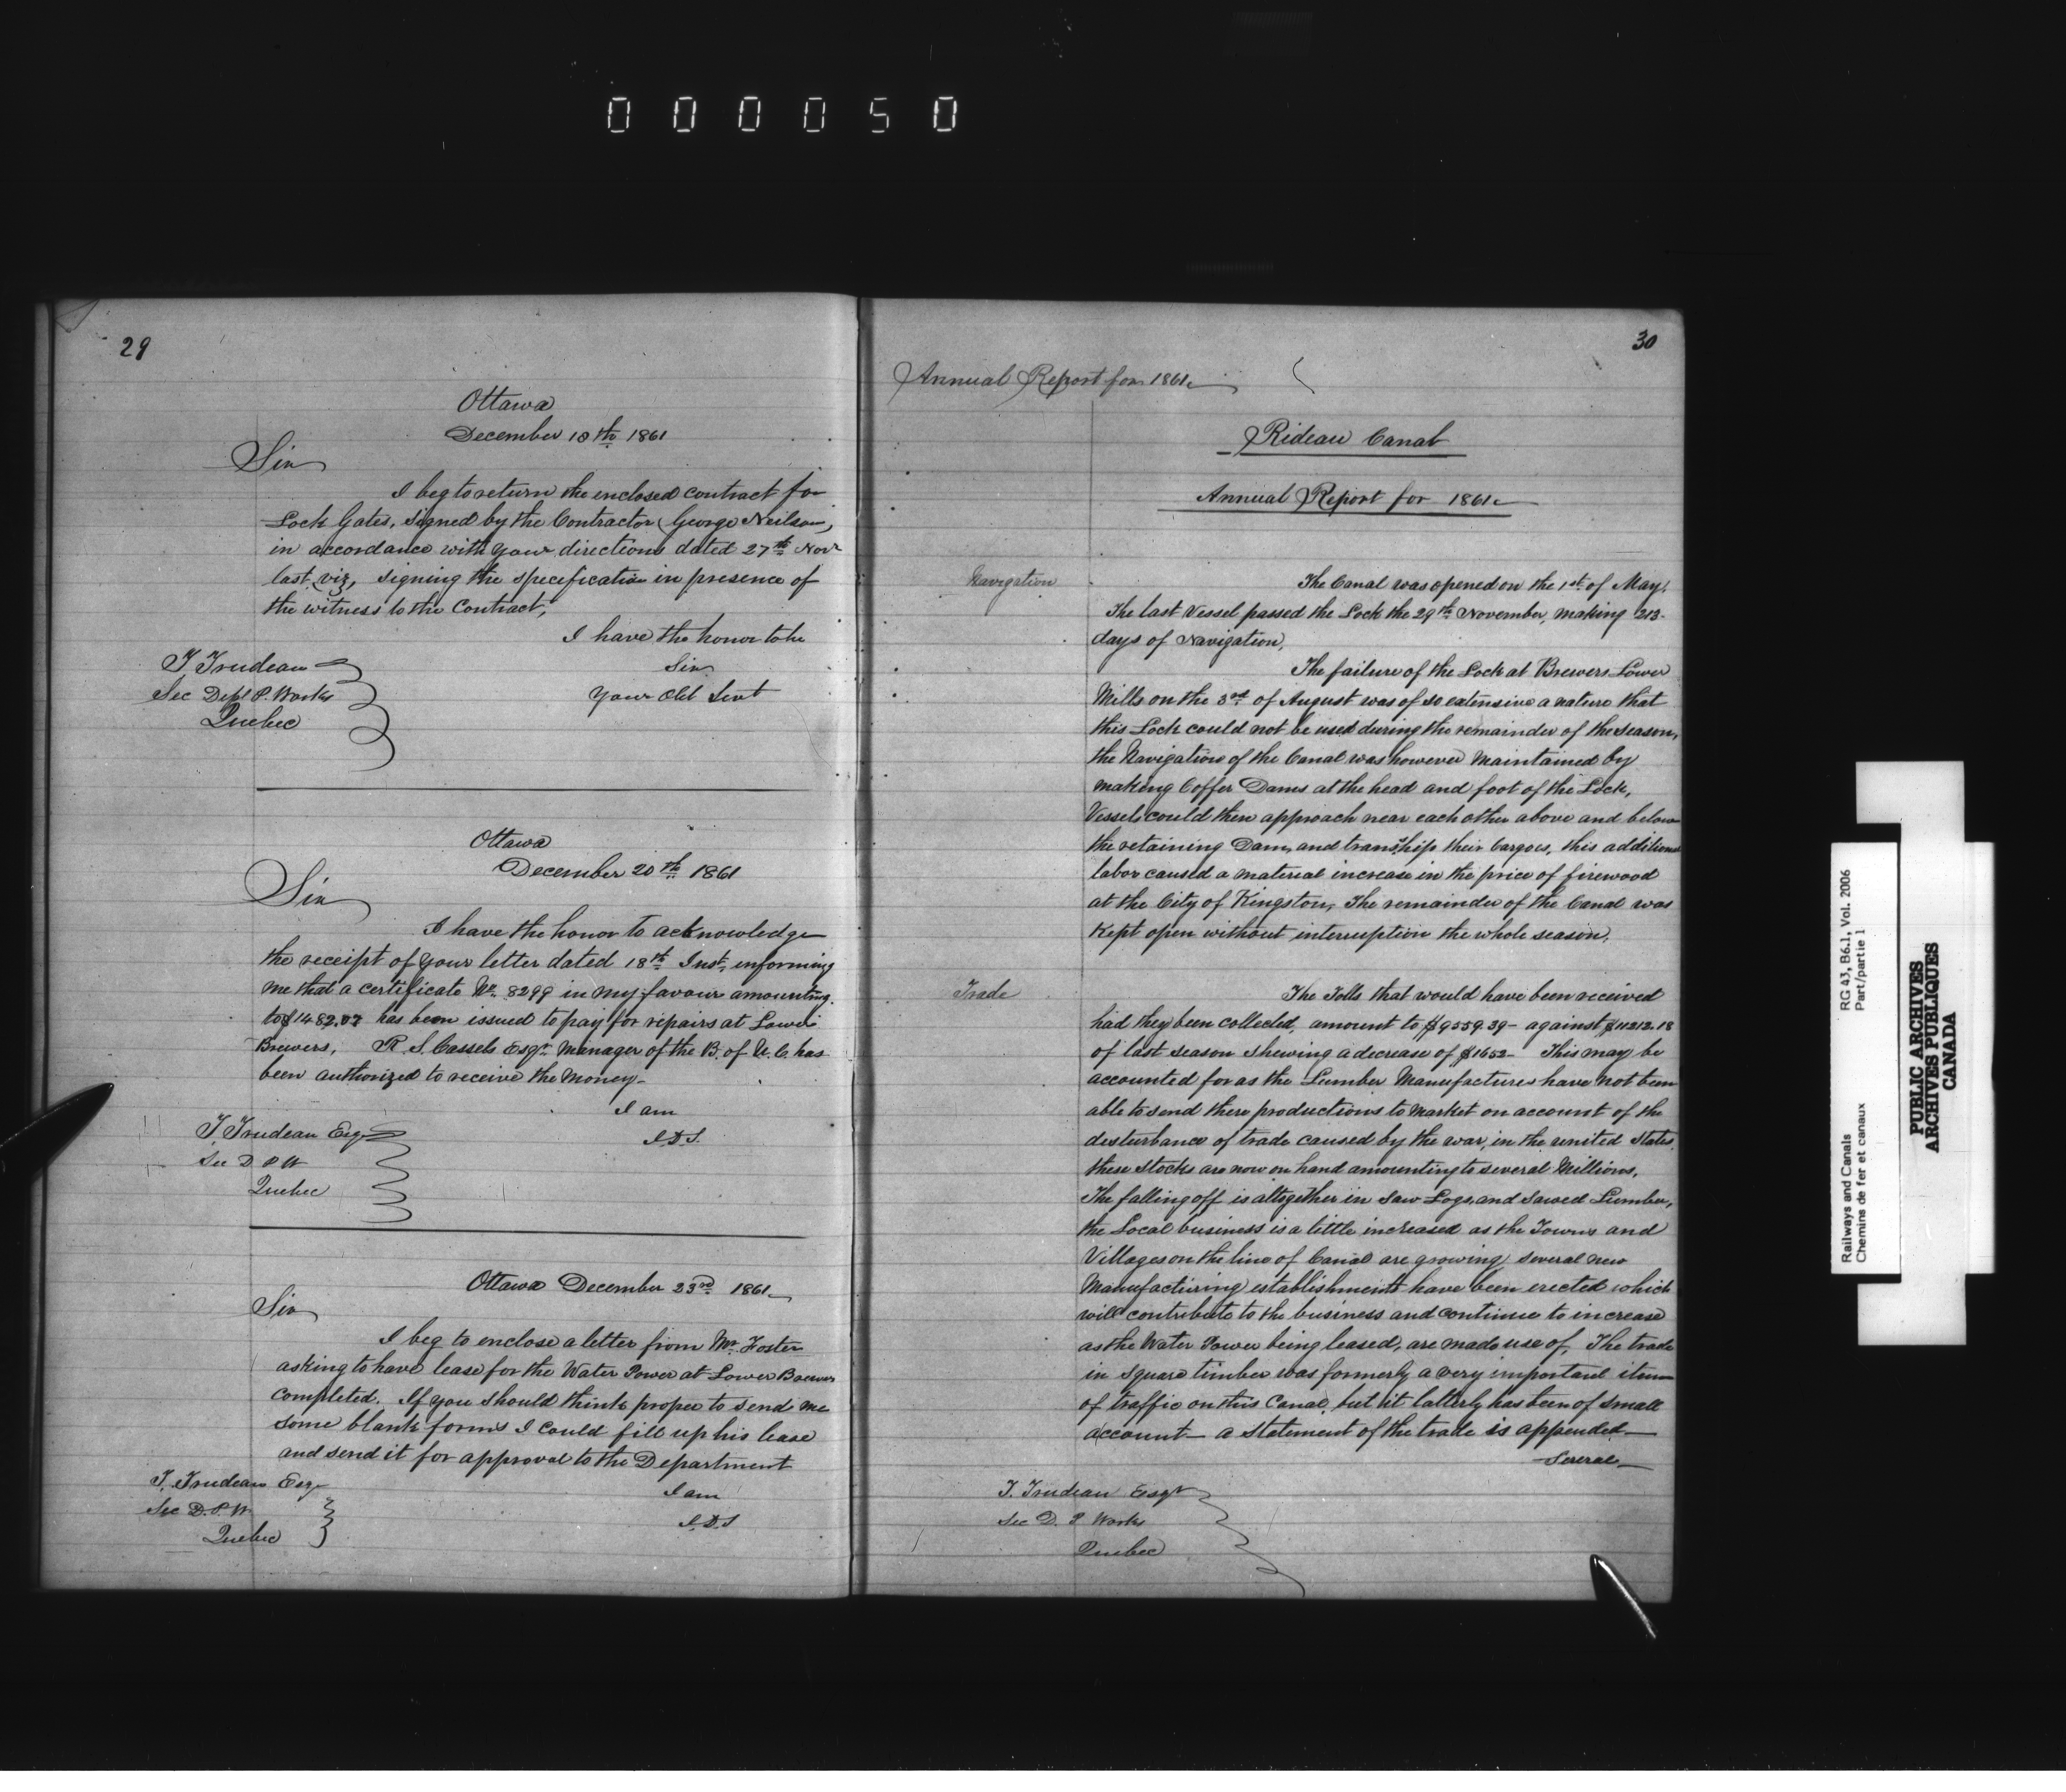 000050
29
Ottawa
December 18th 1861
Sir
I beg to return the enclosed contract for
Lock Gates, signed by the Contractor (George Neilson,
in accordance with your directions dated 27th Novr
last, viz, signing the specification in presence of
the witness to the contract,
I have the honor to be
Sir
Your Obt Servt
T Trudeau
Sec Dept P. Works
Quebec
Ottawa
December 20th 1861
Sir
I have the honor to acknowledge
the receipt of your letter dated 18th Inst, informing
me that a certificate No. 8299 in my favour amounting
to $1482.07 has been issued to pay for repairs at Lower
Brewers, R. S. Cassels Esqr Manager of the B. of U. C. has
been authorized to receive the Money-
I am
T. Trudeau Esqr
Sec D P W
Quebec
Ottawa December 23rd 1861
Sir
I beg to enclose a letter from Mr. Foster
asking to have lease for the Water Power at Lower Brewers
completed. If you should think proper to send me
some blank forms I could fill up his lease
and send it for approval to the Department
I am
T. Trudeau Esqr
Sec D. P. W.
Quebec
30
Annual Report for 1861
Rideau Canal
Annual Report for 1861
Navigation
The Canal was opened on the 1st of May.
The last Vessel passed the Lock the 29th November, making 213
days of Navigation.
The failure of the Lock at Brewers Lower
Mills on the 3rd of August was of so extensive a nature that
this Lock could not be used during the remainder of the season,
the Navigation of the Canal was however Maintained by
making Coffer Dams at the head and foot of the Lock,
Vessels could then approach near each other above and below
the retaining Dam, and transship their Cargoes, this additional
labor caused a material increase in the price of firewood
at the City of Kingston, The remainder of the Canal was
Kept open without interruption the whole season.
Trade
The Tolls that would have been received
had they been collected, amount to $9559.39- against $11212.18
of last season shewing a decrease of $1652- This may be
accounted for as the Lumber Manufactures have not been
able to send there productions to Market on account of the
disturbance of trade caused by the war, in the united States,
these stocks are now on hand amounting to several Millions.
The falling off is altogether in Saw Logs, and Sawed Lumber,
the Local business is a little increased as the Towns and
Villages on the line of Canal are growing, several new
Manufacturing establishments have been erected which
will contribute to the business and continue to increase
as the Water Power being leased, are made use of, The trade
in square timber was formerly a very important item
of traffic on this Canal, but it latterly has been of small
account- a Statement of the trade is appended-
Several-
T. Trudeau Esqr
Sec D. P Works
Quebec
Railways and Canals
Chemins de fer et canaux
RG 43, B6.1, Vol. 2006
Part/partie 1
PUBLIC ARCHIVES
ARCHIVES PUBLIQUES
CANADA